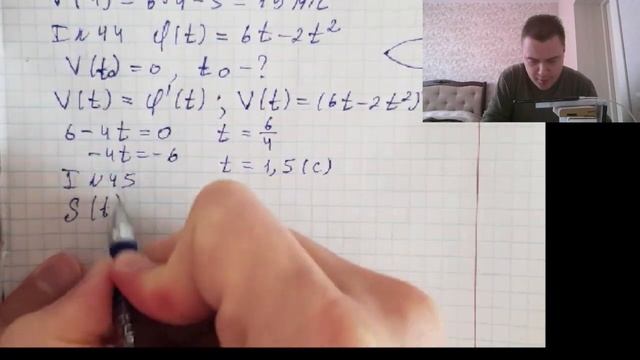 I N 44 φ(t) = 6t - 2t²
V(t₀) = 0, t₀ - ?
V(t) = φ'(t); V(t) = (6t - 2t²)
6 - 4t = 0 t = 6/4
-4t = -6 t = 1,5 (c)
I N 45
S(t